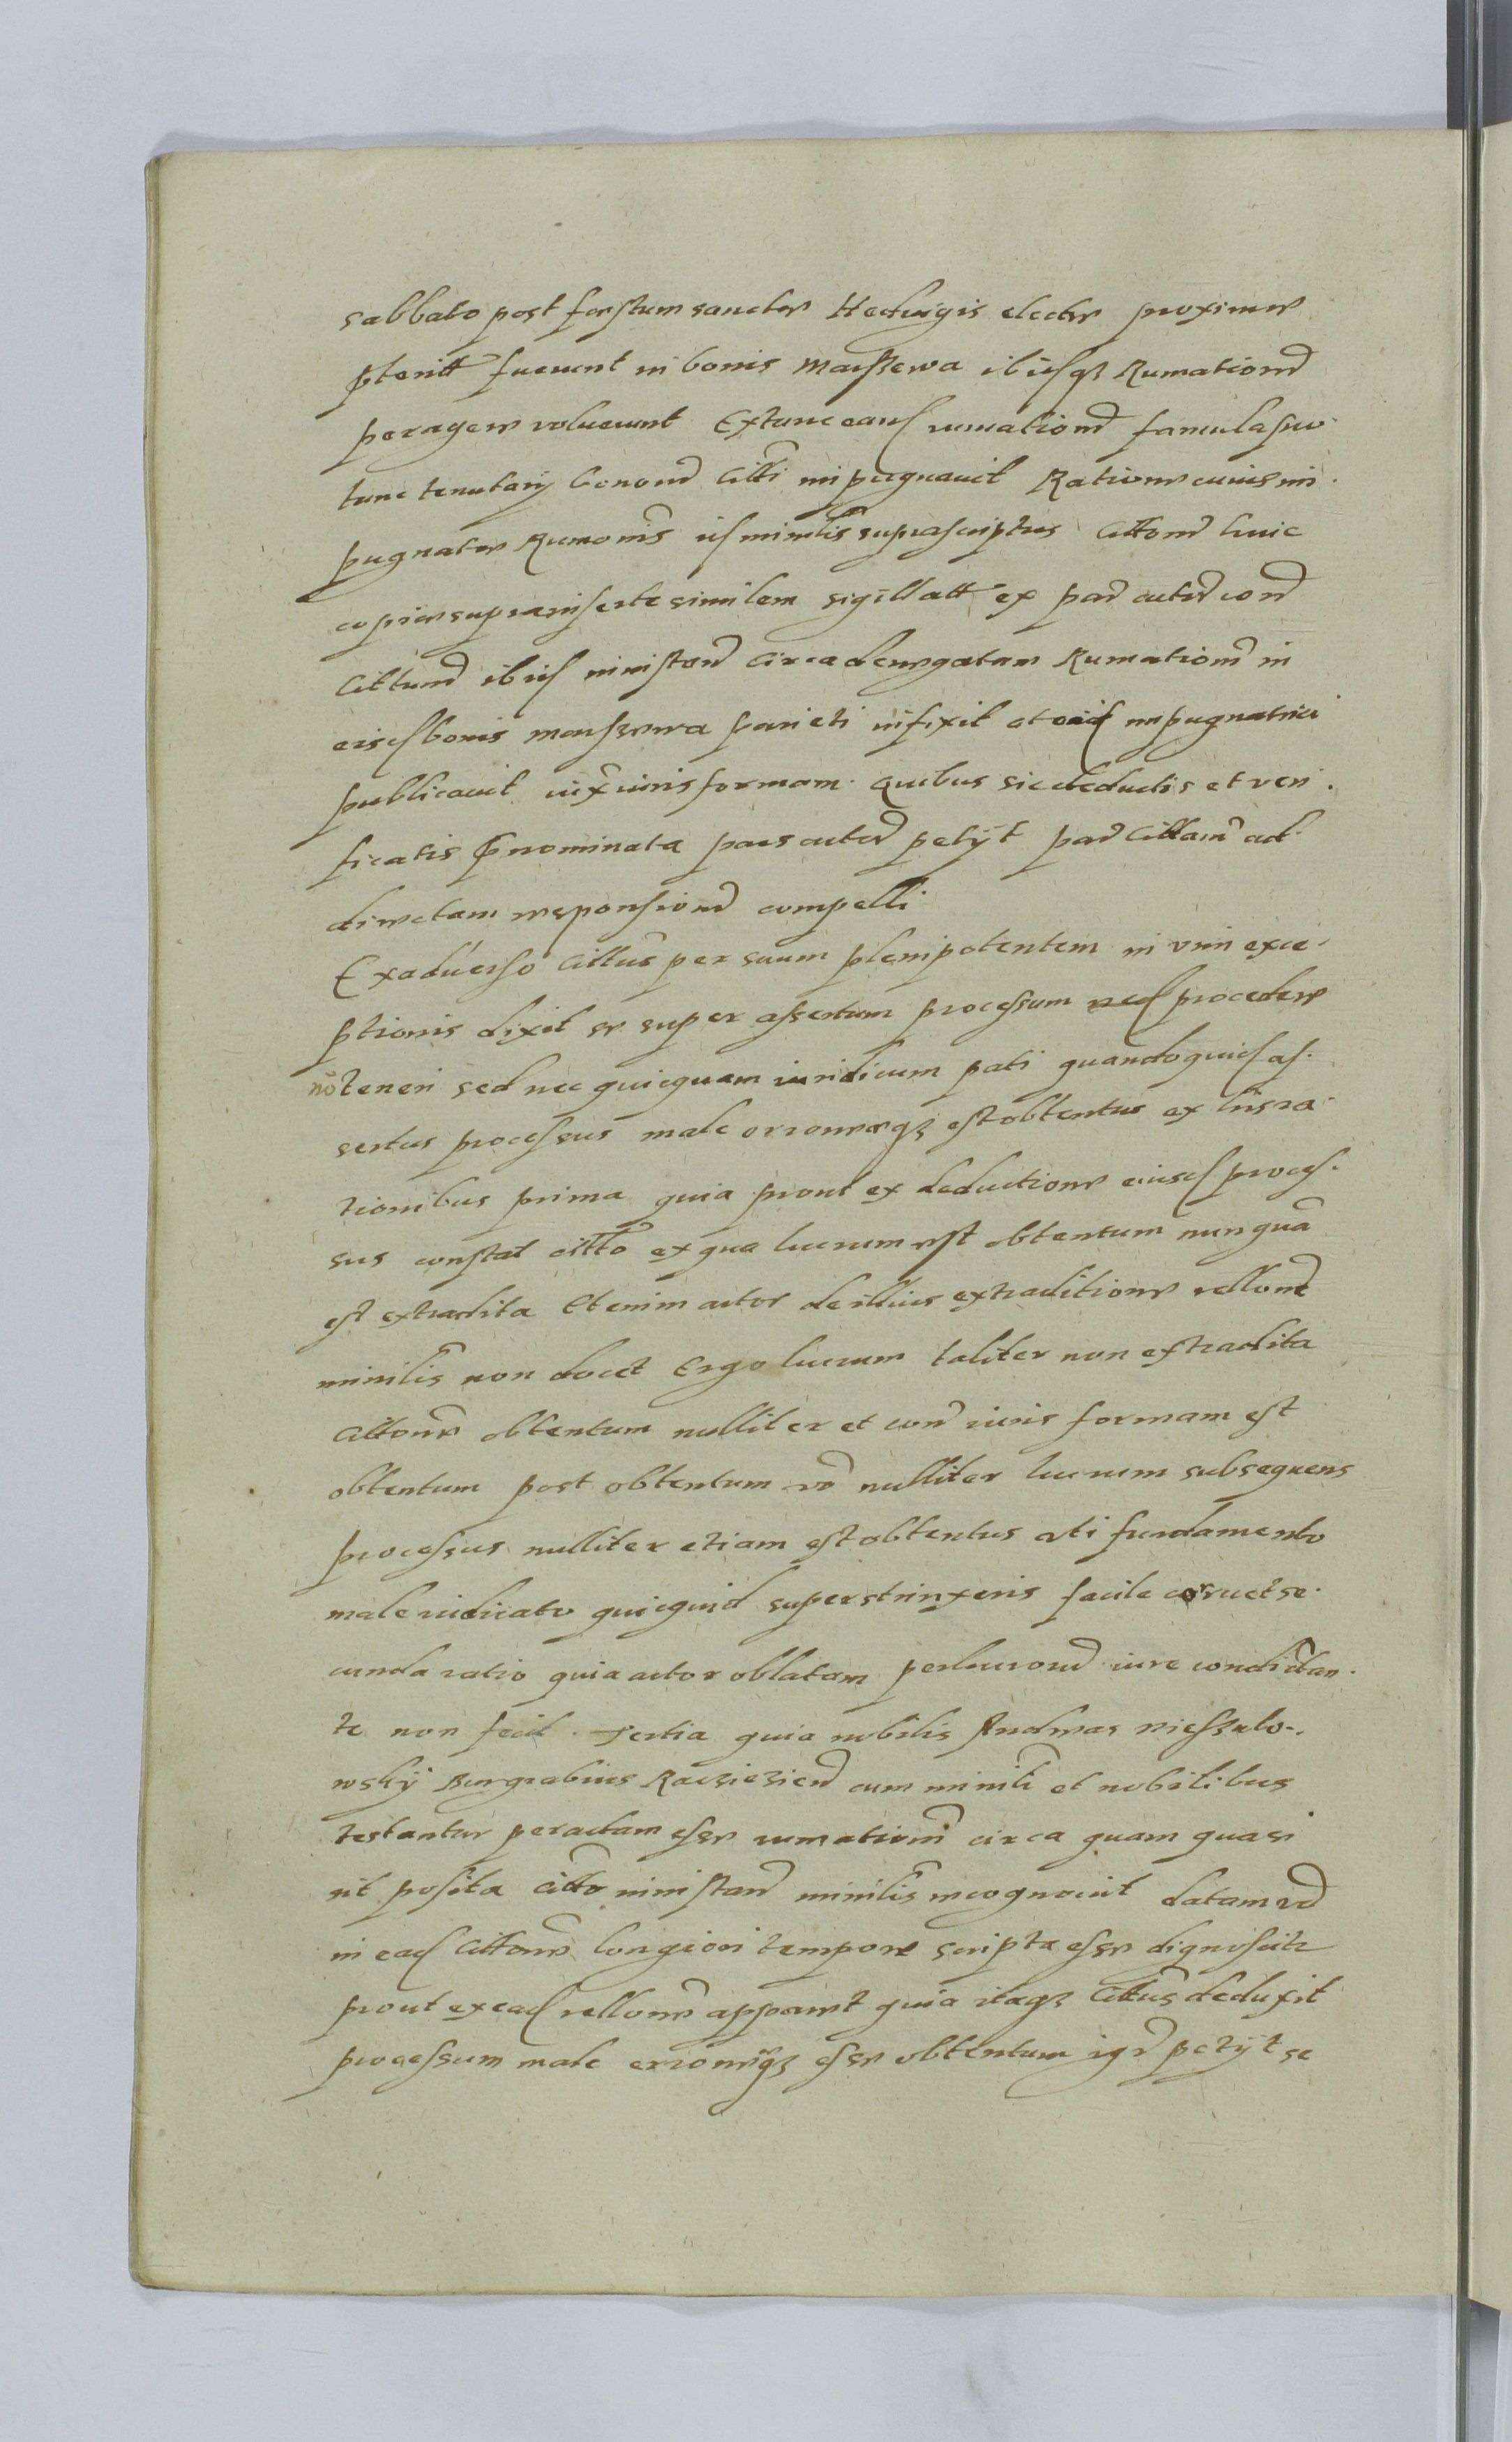 sabbato post festum sanctae Heduigis electae proxime
pteritt fuerunt in bonis Maissewa ibiſqʒ Rumationē
peragere voluerunt Extunc eand rumationē famula seu
tunc tenutarÿ bonorū Citti impugnauit Ratione cuius im.
pugnatae Rumonis id minrlis suprascriptus Cittonē huic
copiae suprainserte similem sigillatt ex par actorea con
Cittum ibid ministrand circa denegatam Rumationē in
eisd bonis Maissewa parieti infixit et eid impugnatrici
publicauit iux iuris formam. Quibus sic deductis et veri.
ficatis pnominata pars actor petÿt par Cittam ad
directam responsionē compelli
Exaduerso Cittus per suum plenipotentem in vim exce.
ptionis dixit se super assertum processum procedere
nō teneri sed nec quicquam iuridicum pati quandoquid as.
sertus processus male erroneeqʒ est obtentus ex his ra
tionibus prima quia prout ex deductione eiusd proces.
sus constat citto ex qua lucrum est obtentum nunquā
est extradita Etenim actor de illius extraditione rellonē
minrlis non docet Ergo lucrum taliter non extradita
Cittone obtentum nulliter et con iuris formam est
obtentum post obtentum vo nulliter lucrum subsequens
processus nulliter etiam est obtentus uti fundamento
male iudicato quicquid superstrinxeris facile corruet se.
cunda ratio quia actor oblatam perlucrorum iure condictan.
te non fecit. Tertia quia nobilis Andreas Nieszulo.
wskÿ Burgrabius Raczieziens cum minrli et nobilibus
testantur peractam esse rumationē circa quam quasi
sit posita citto ministrand minrlis recognouit datam vo
in ead Cittone longiori tempore scripta esse dignoscitr
prout ex ead rellone apparet quia itaqʒ Cittus deduxit
processum male erroneeqʒ esse obtentum igr petÿt se